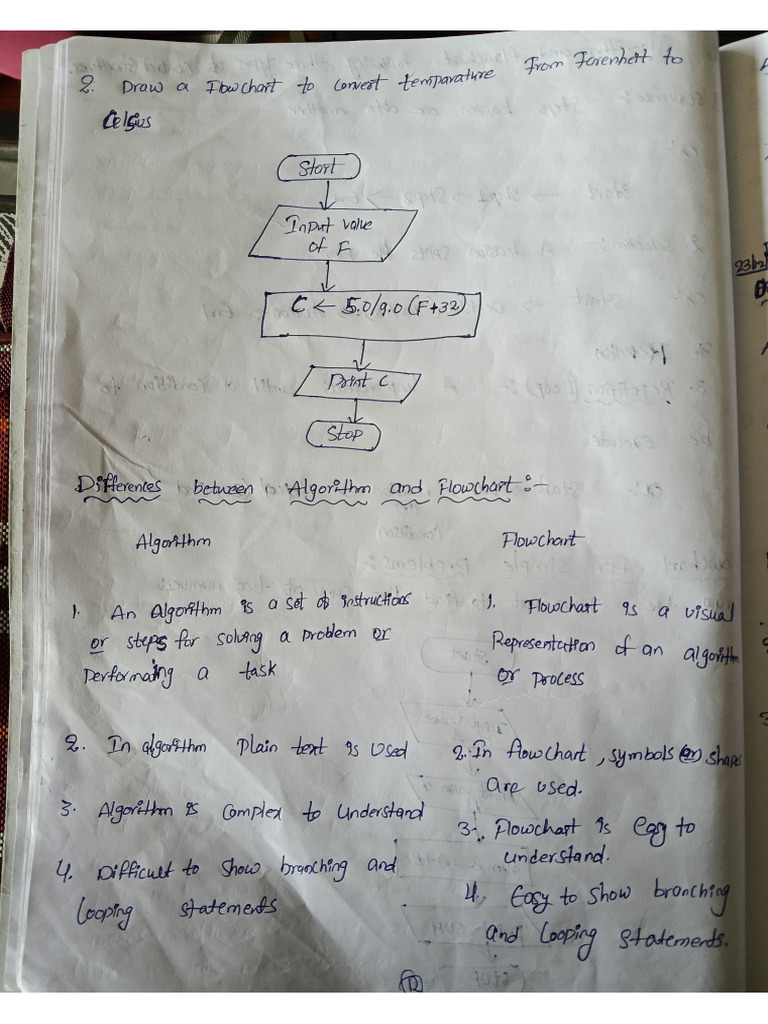 2. Draw a Flowchart to convert temparature From Farenheit to
Celsius
Start
Input value
of F
C ← 5.0/9.0 (F+32)
Print C
Stop
Differences between Algorithm and Flowchart :-
Algorithm
Flowchart
1. An Algorithm is a set of instructions
or steps for solving a problem or
performaing a task
1. Flowchart is a visual
Representation of an algorithm
or process
2. In algorithm plain text is used
2. In flowchart, symbols (or) shapes
are used.
3. Algorithm is complex to understand
3. Flowchart is easy to
understand.
4. Difficult to show branching and
looping statements
4. Easy to show branching
and looping statements.
12
23b2